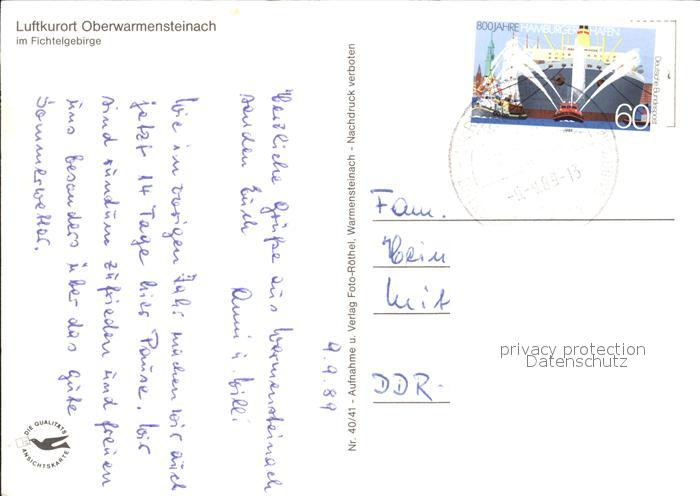 Luftkurort Oberwarmensteinach
im Fichtelgebirge
9.9.89
Herzliche Grüße aus Warmensteinach
senden Euch
Anni u. Willi
Wie im vorigen Jahr machen wir auch
jetzt 14 Tage hier Pause. Wir
sind rundum zufrieden und freuen
uns besonders über das gute
Sommerwetter.
DIE QUALITÄTS
ANSICHTSKARTE
Nr. 40/41 - Aufnahme u. Verlag Foto-Röthel, Warmensteinach - Nachdruck verboten
800 JAHRE HAMBURGER HAFEN
Deutsche Bundespost
60
1989
Fam.
Hein
DDR-
privacy protection
Datenschutz